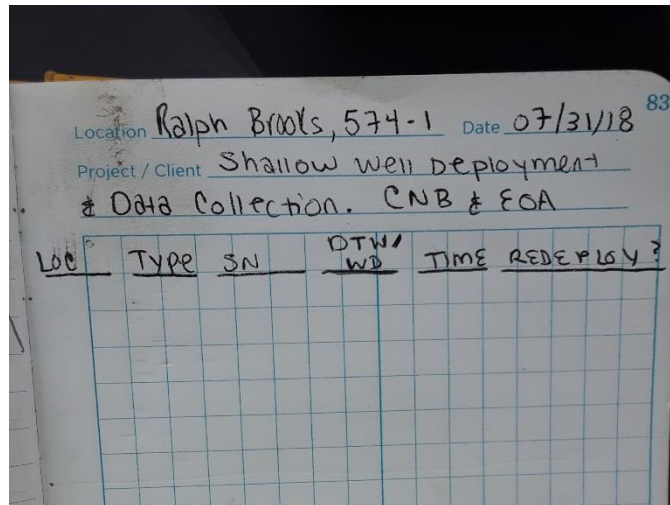 83
Location Ralph Brooks, 574-1 Date 07/31/18
Project / Client Shallow Well Deployment
& Data Collection. CNB & EOA
LOC TYPE SN DTW/ WD TIME REDEPLOY?